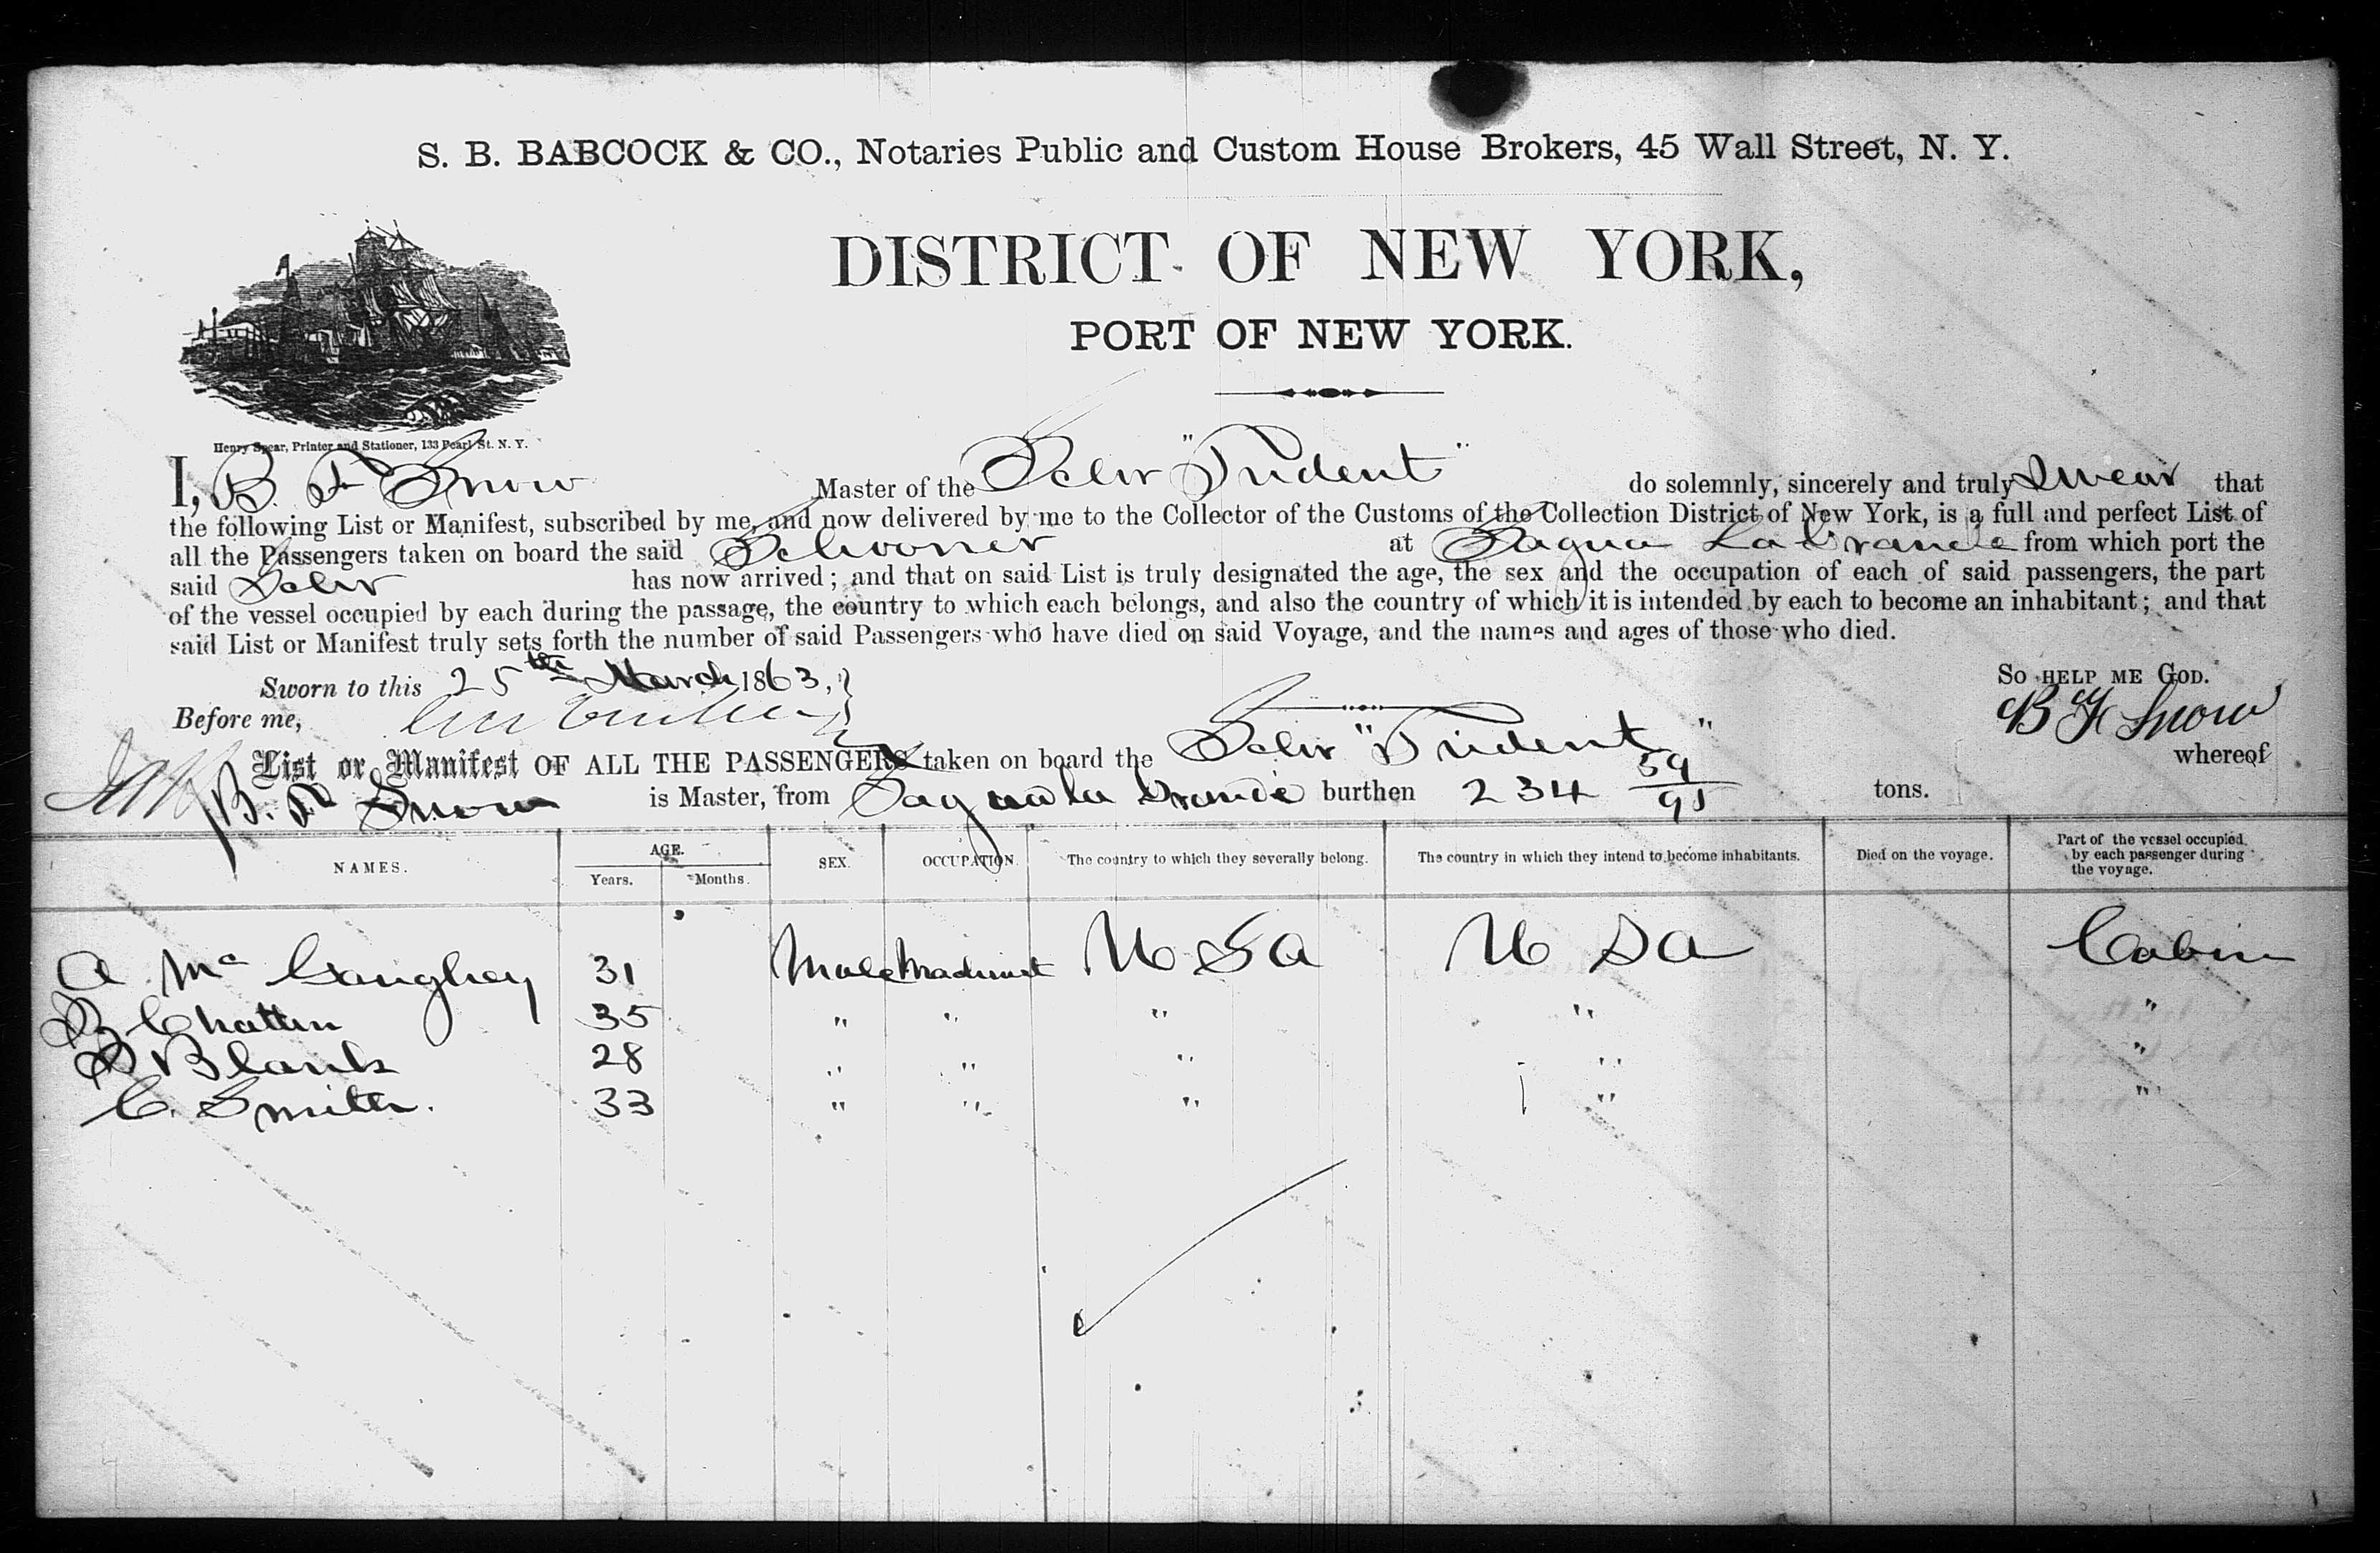 S. B. BABCOCK & CO., Notaries Public and Custom House Brokers, 45 Wall Street, N. Y.
DISTRICT OF NEW YORK,
PORT OF NEW YORK.
Henry Spear, Printer and Stationer, 133 Pearl St. N. Y.
I, B. F. Snow Master of the Schr "Trident" do solemnly, sincerely and truly Swear that
the following List or Manifest, subscribed by me, and now delivered by me to the Collector of the Customs of the Collection District of New York, is a full and perfect List of
all the Passengers taken on board the said Schooner at Sagua La Grande from which port the
said Schr has now arrived; and that on said List is truly designated the age, the sex and the occupation of each of said passengers, the part
of the vessel occupied by each during the passage, the country to which each belongs, and also the country of which it is intended by each to become an inhabitant; and that
said List or Manifest truly sets forth the number of said Passengers who have died on said Voyage, and the names and ages of those who died.
Sworn to this 25th March 1863, SO HELP ME GOD.
Before me, B F Snow
List or Manifest OF ALL THE PASSENGERS taken on board the Schr "Trident" whereof
B. F. Snow is Master, from Sagua la Grande burthen 234 59/95 tons.
NAMES. AGE. Years. Months. SEX. OCCUPATION. The country to which they severally belong. The country in which they intend to become inhabitants. Died on the voyage. Part of the vessel occupied by each passenger during the voyage.
A Mc Gaughey 31 Male Machinist U S A U S A Cabin
B Chatten 35 " " " " "
S Blank 28 " " " " "
C. Smith. 33 " " " " "